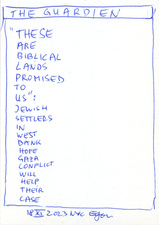 THE GUARDIEN
"THESE
ARE
BIBLICAL
LANDS
PROMISED
TO
US":
JEWISH
SETTLERS
IN
WEST
BANK
HOPE
GAZA
CONFLICT
WILL
HELP
THEIR
CASE
18 XI 2023 NYC